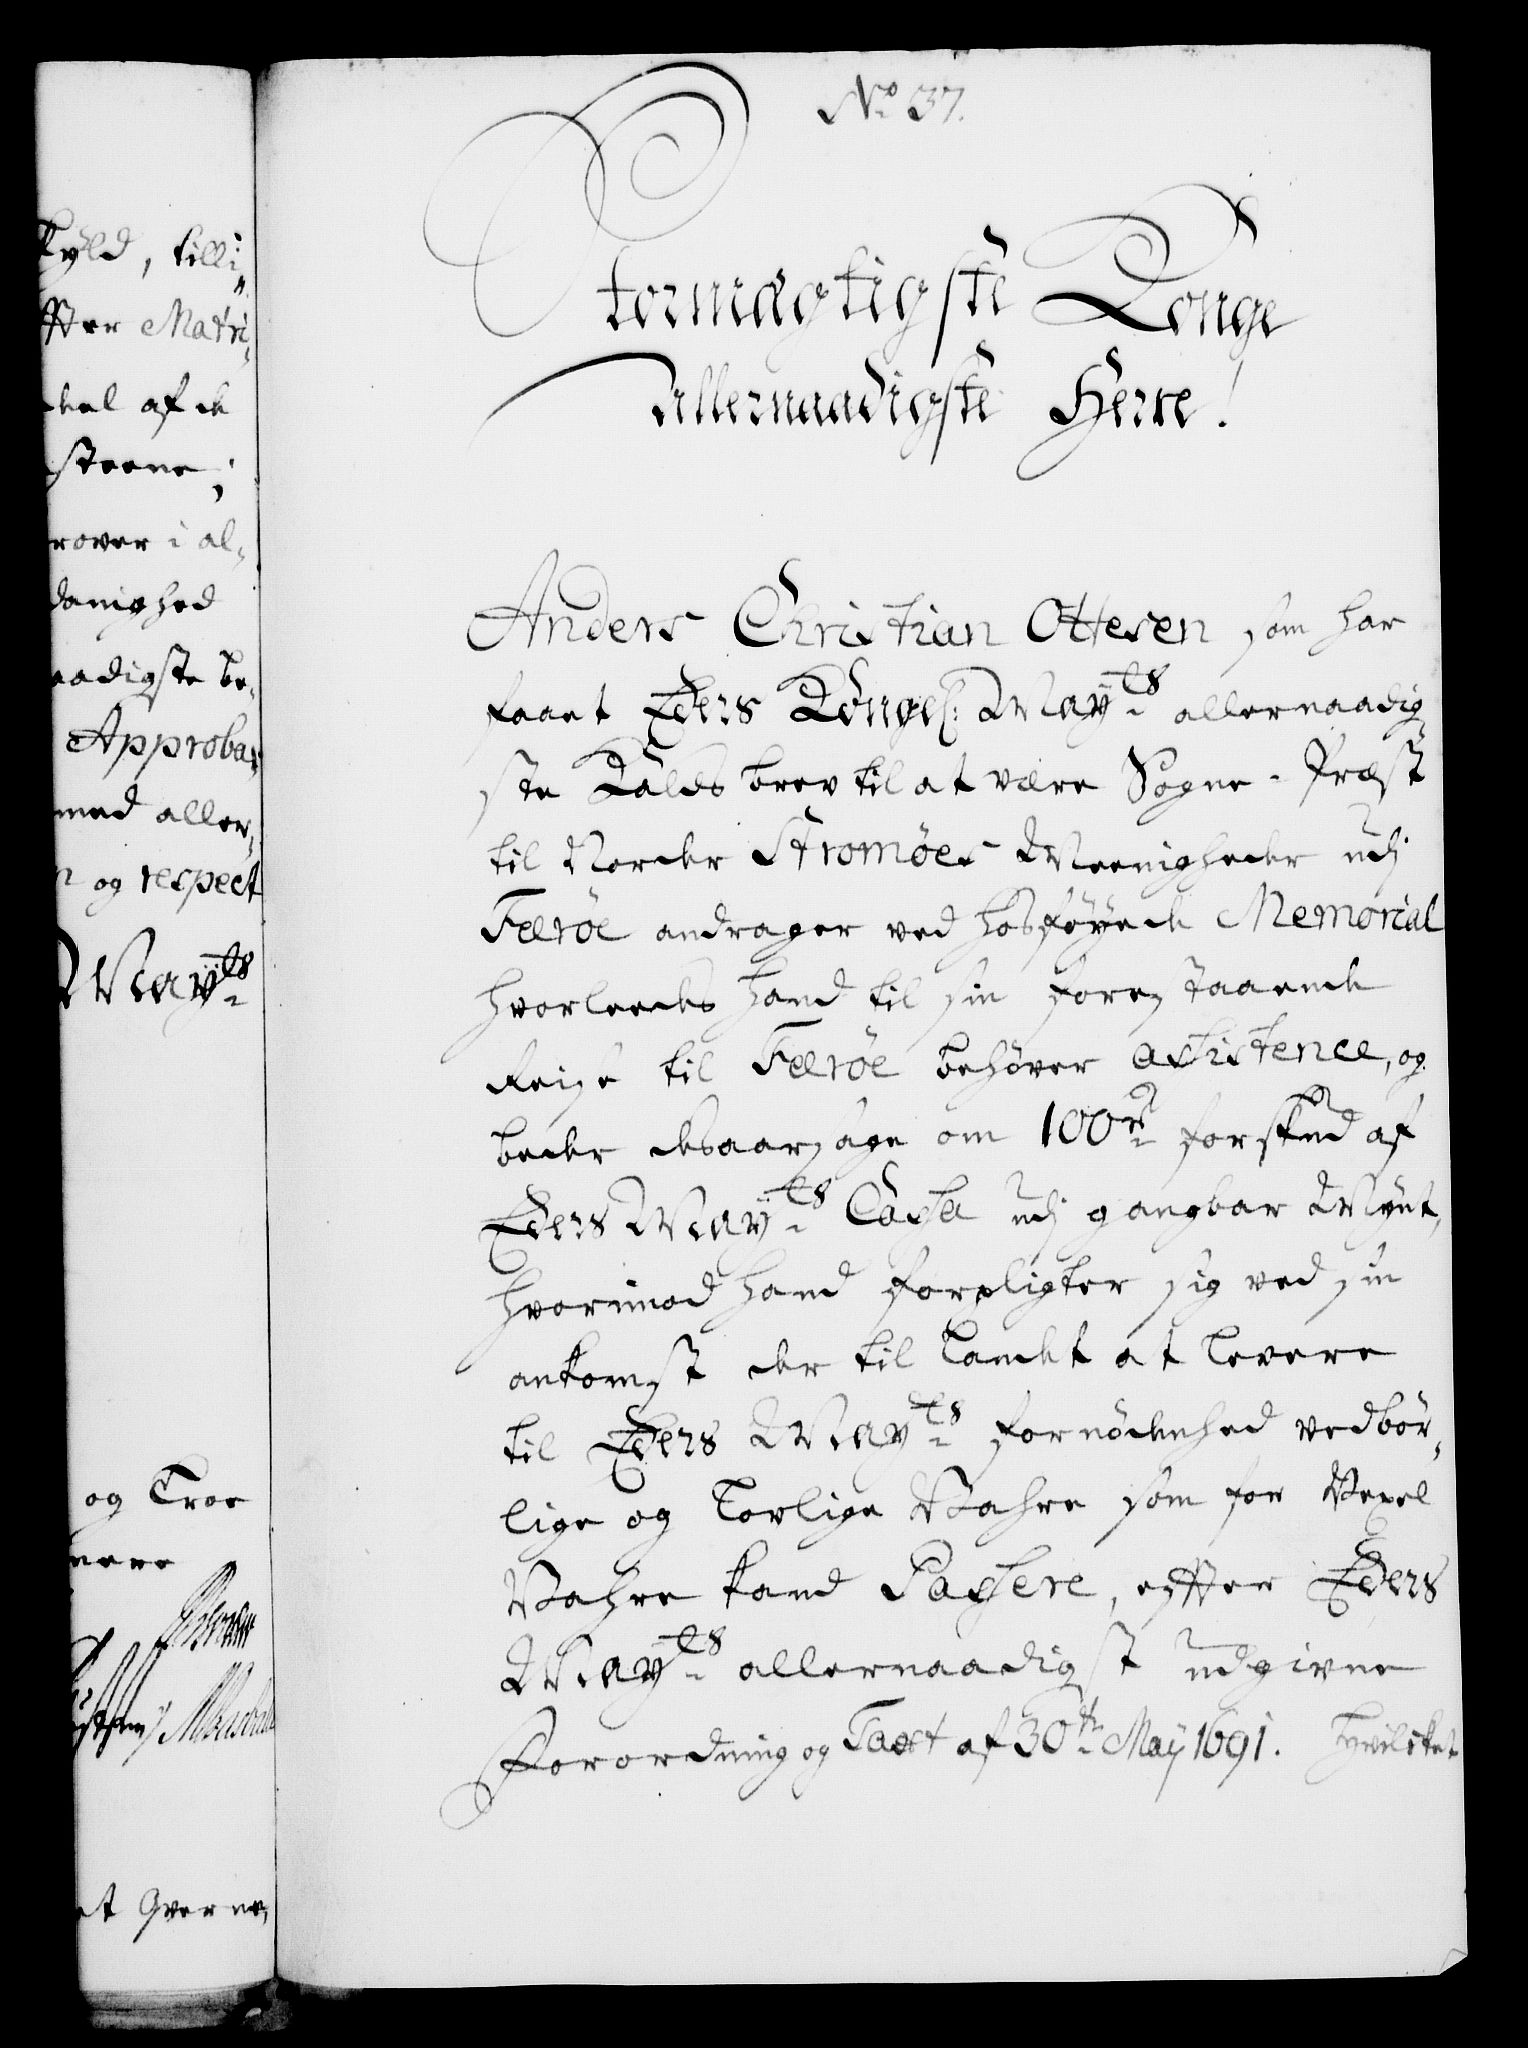 No 37.
Stormægtigste Konge
Allernaadigste Herre!
Anders Christian Ottesen som har
faaet Eders Kongel: May:ts allernaadig
ste Kalds brev til at være Sogne-Præst
til Norder Strømøes Meenigheder udj
Færöe andrager ved hosföyede Memorial
hvorleedes hand til sin forestaaende
Reise til Færöe behöver assistence, og
beder desaarsage om 100 rd forskud af
Eders May:ts Cassa udj gangbar Mynt,
hvorimod hand forpligter sig ved sin
ankomst der til Landet at levere
til Eders May:ts fornödenhed vedbör,
lige og lovlige Vahre som for Vexel
Vahre kand Passere, effter Eders
May:ts allernaadigst udgivne
Forordning og Taxt af 30te Maij 1691. Hvilcket
kyld, tilli,,
ffter Matri,
deel af de
steene;
prover i al,
danighed
aadigste be,
Approba,
med aller,
og respect
May:ts
og Troe
nere
et Qverne,